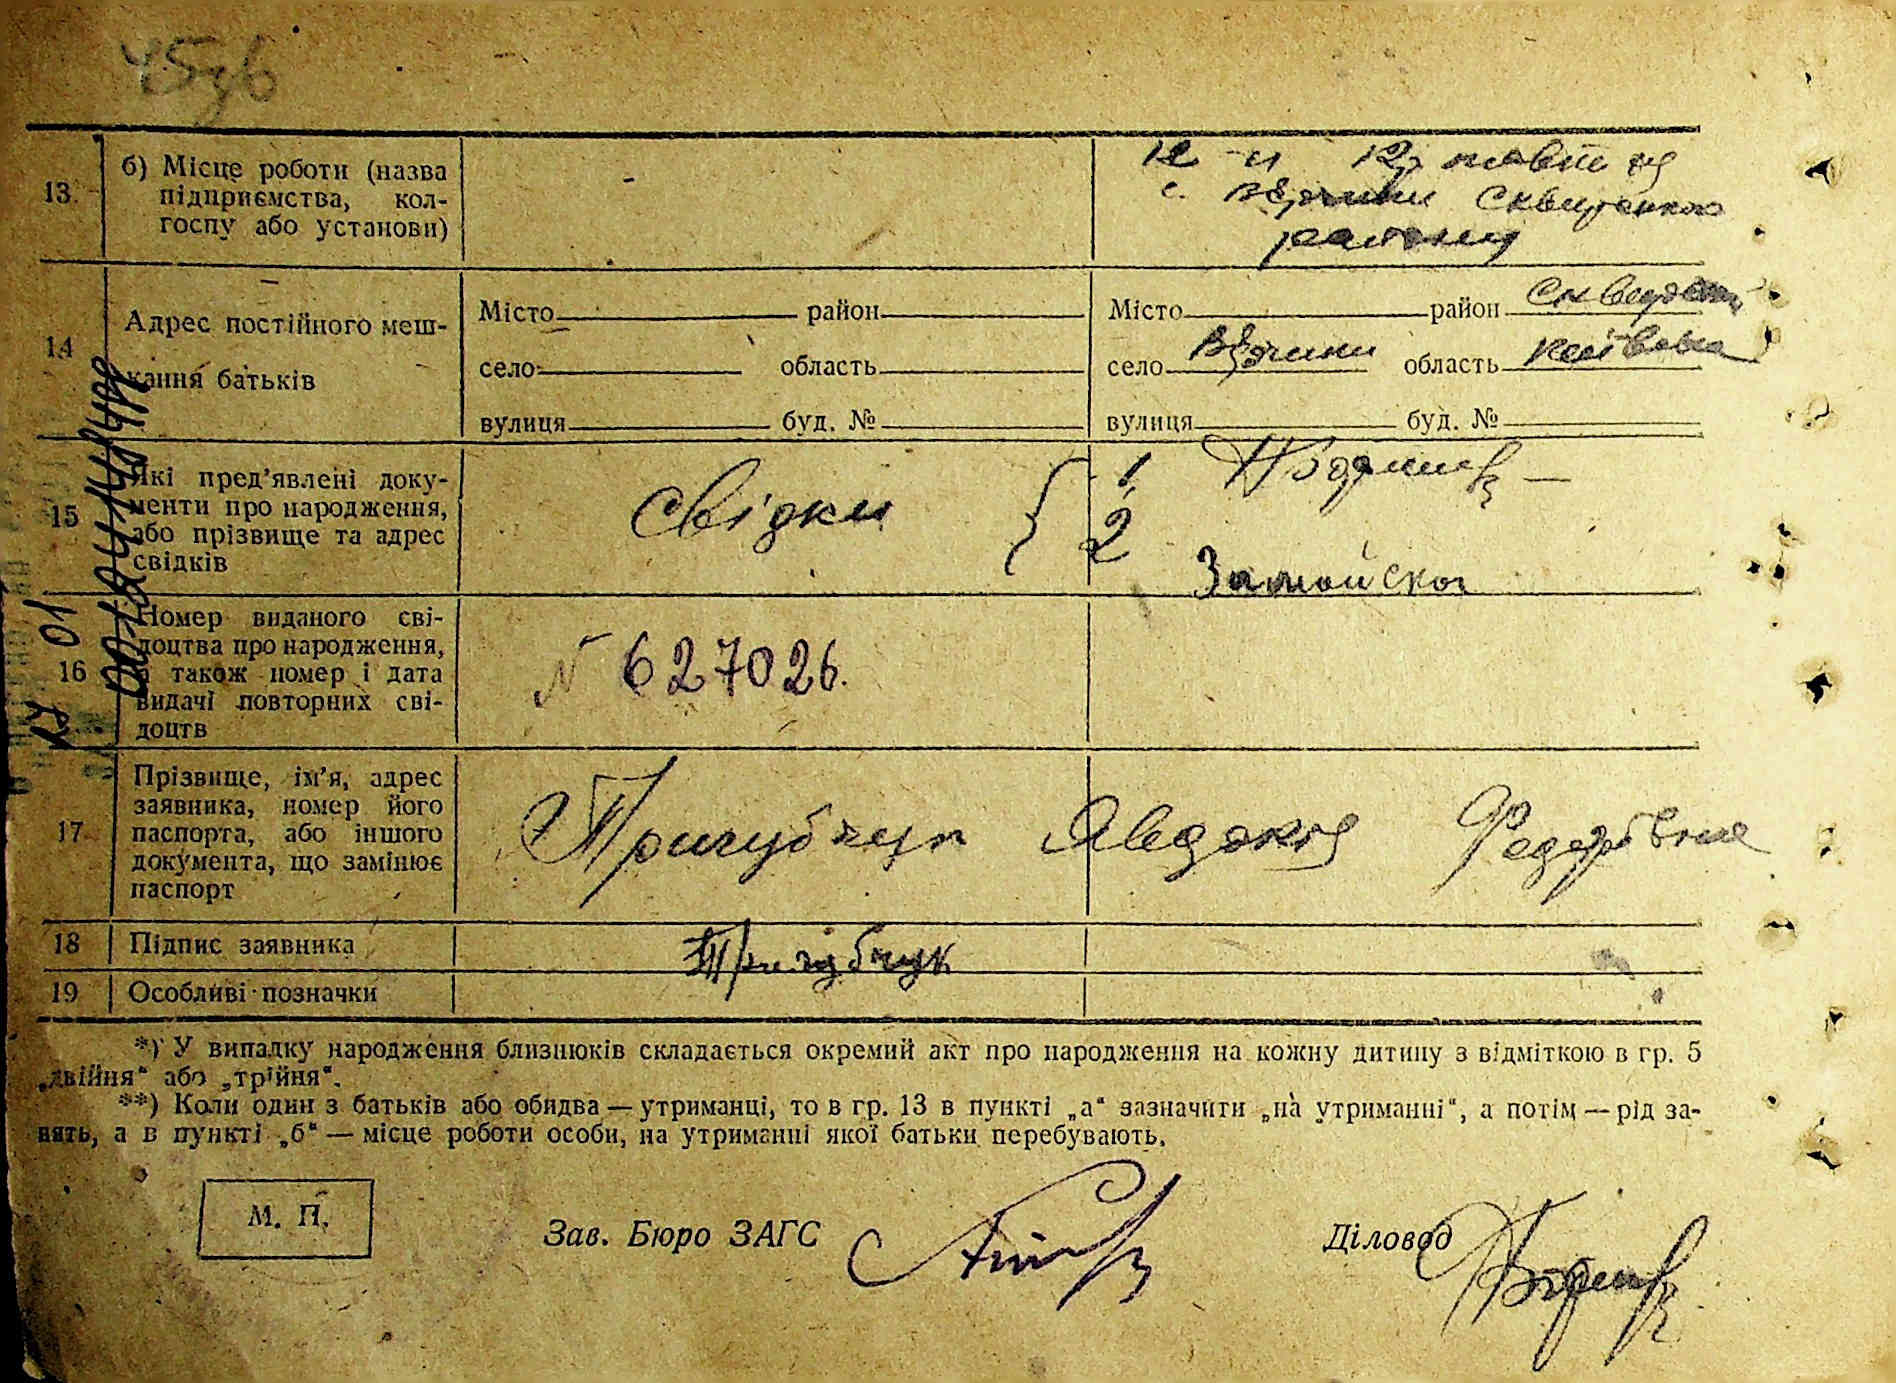 13. б) Місце роботи (назва
підприємства, кол-
госпу або установи)
-
с. Сквирского
району
14 Адрес постійного меш-
кання батьків
Місто район
село область
вулиця буд. №
Місто район
село область Київська
вулиця буд. №
15 Які пред'явлені доку-
менти про народження,
або прізвище та адрес
свідків
Свідки { 1,
2
Замойска
16 Номер виданого сві-
доцтва про народження,
а також номер і дата
видачі повторних сві-
доцтв
№ 627026.
17. Прізвище, ім'я, адрес
заявника, номер його
паспорта, або іншого
документа, що замінює
паспорт
Явдокія Федорівна
18 Підпис заявника
19 Особливі позначки
*) У випадку народження близнюків складається окремий акт про народження на кожну дитину з відміткою в гр. 5
„двійня“ або „трійня“.
**) Коли один з батьків або обидва — утриманці, то в гр. 13 в пункті „а“ зазначити „на утриманні“, а потім — рід за-
нять, а в пункті „б“ — місце роботи особи, на утриманні якої батьки перебувають.
М. П.
Зав. Бюро ЗАГС
Діловод